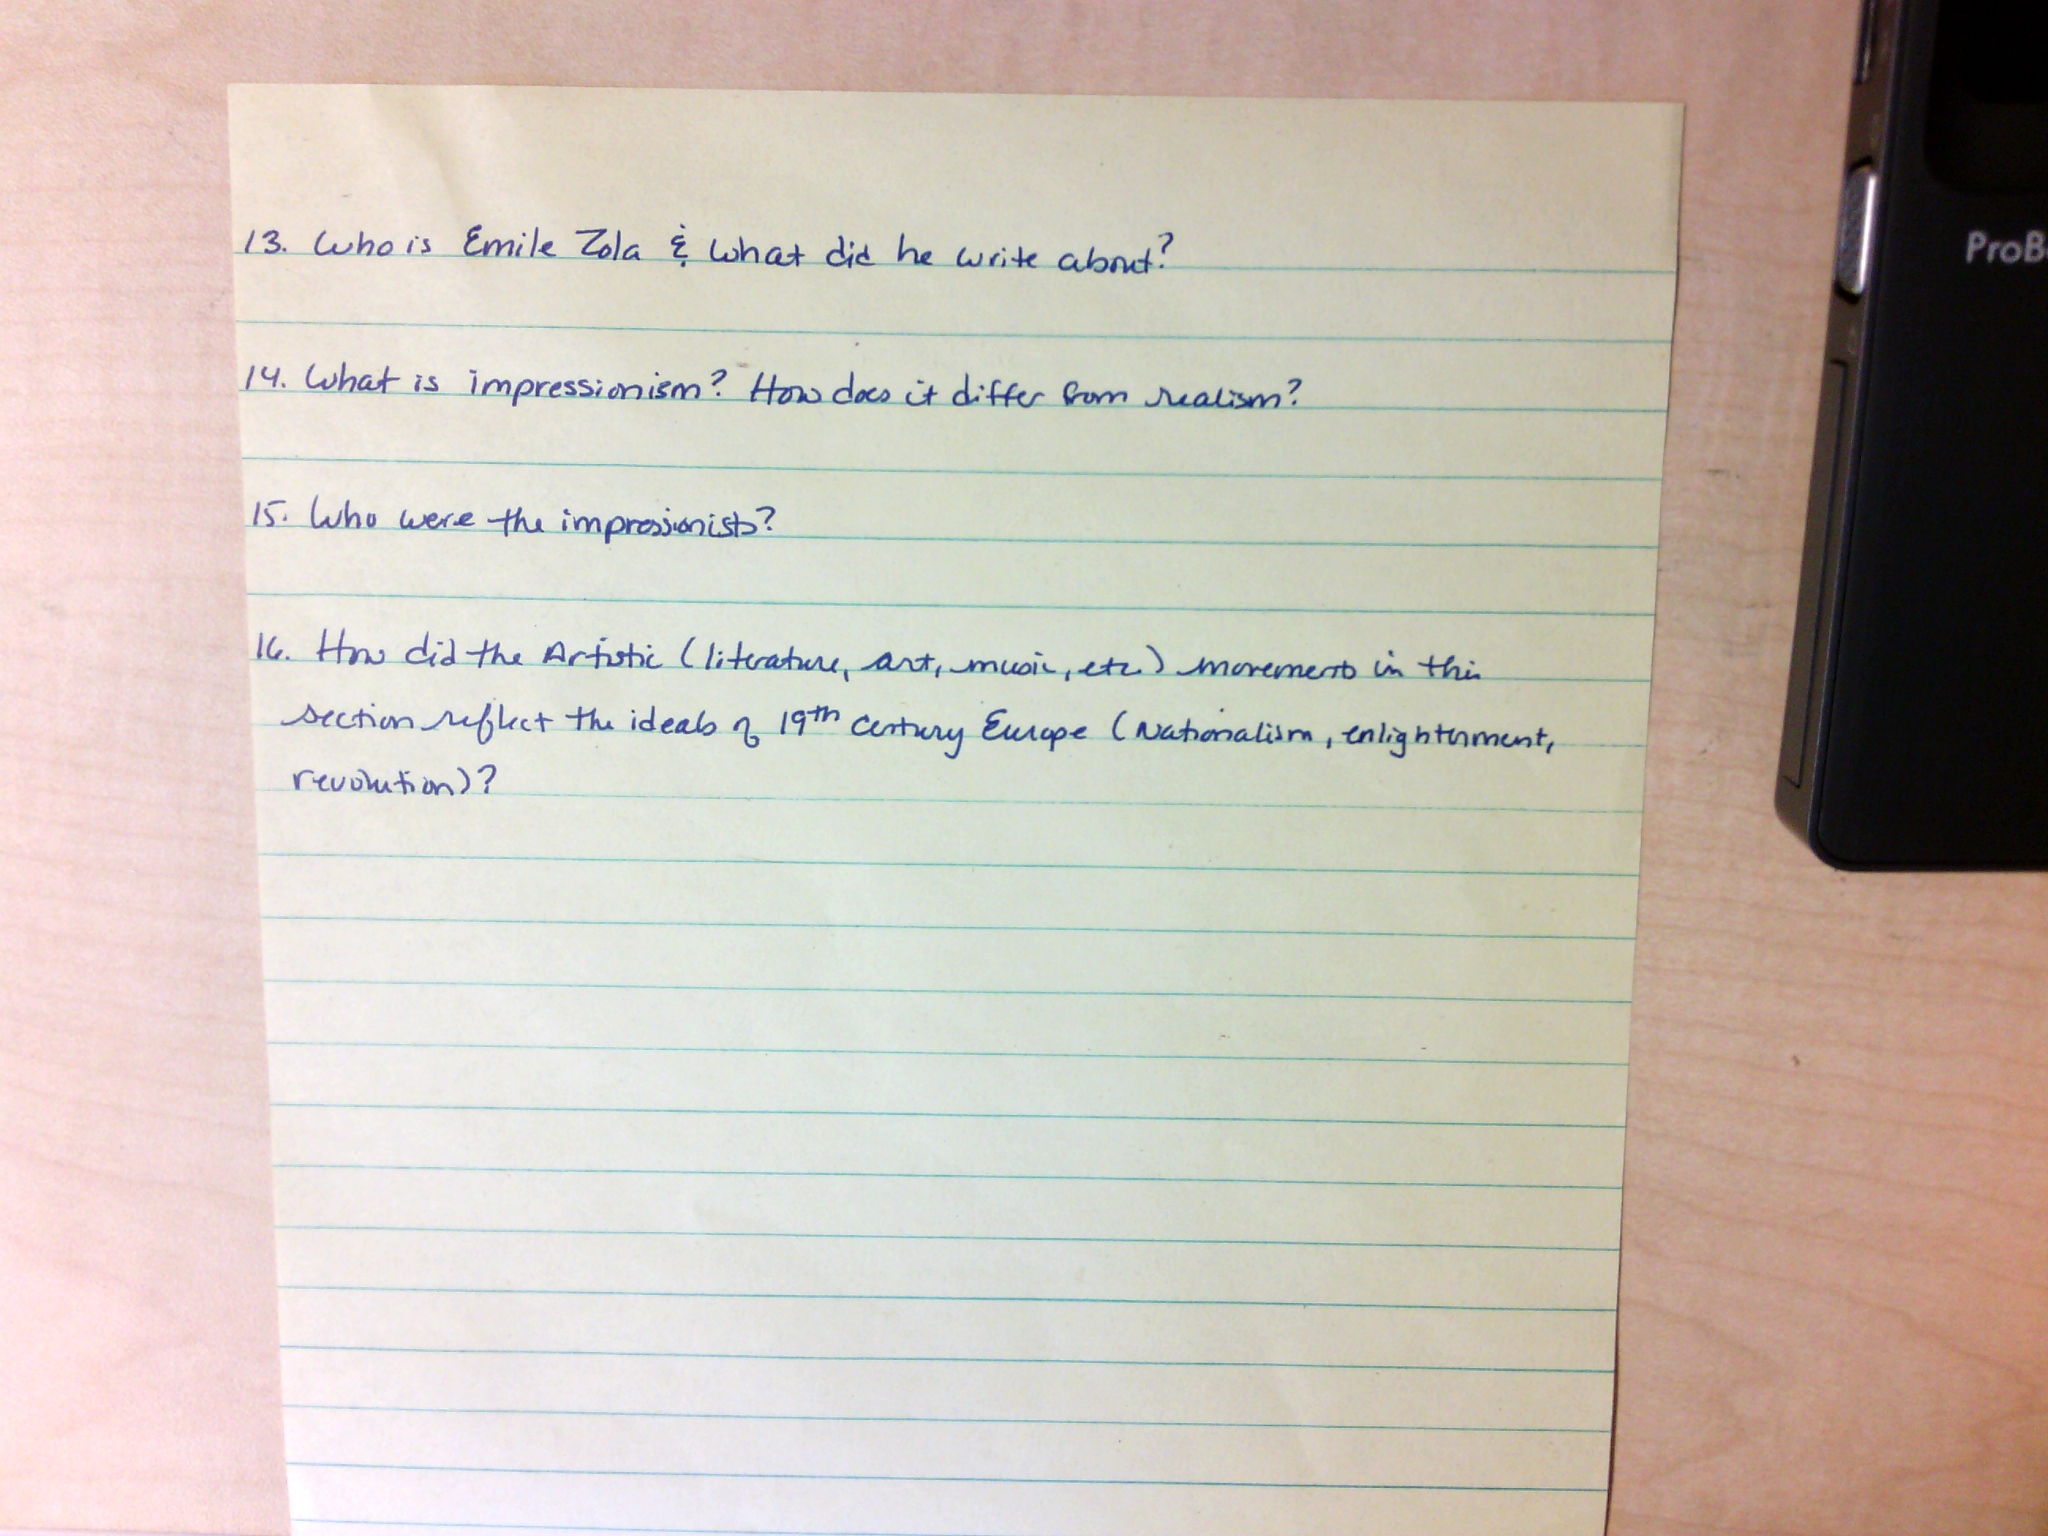 13. Who is Emile Zola & what did he write about?
14. What is impressionism? How does it differ from realism?
15. Who were the impressionists?
16. How did the Artistic (literature, art, music, etc.) movements in this
section reflect the ideals of 19th century Europe (Nationalism, enlightenment,
revolution)?
ProB